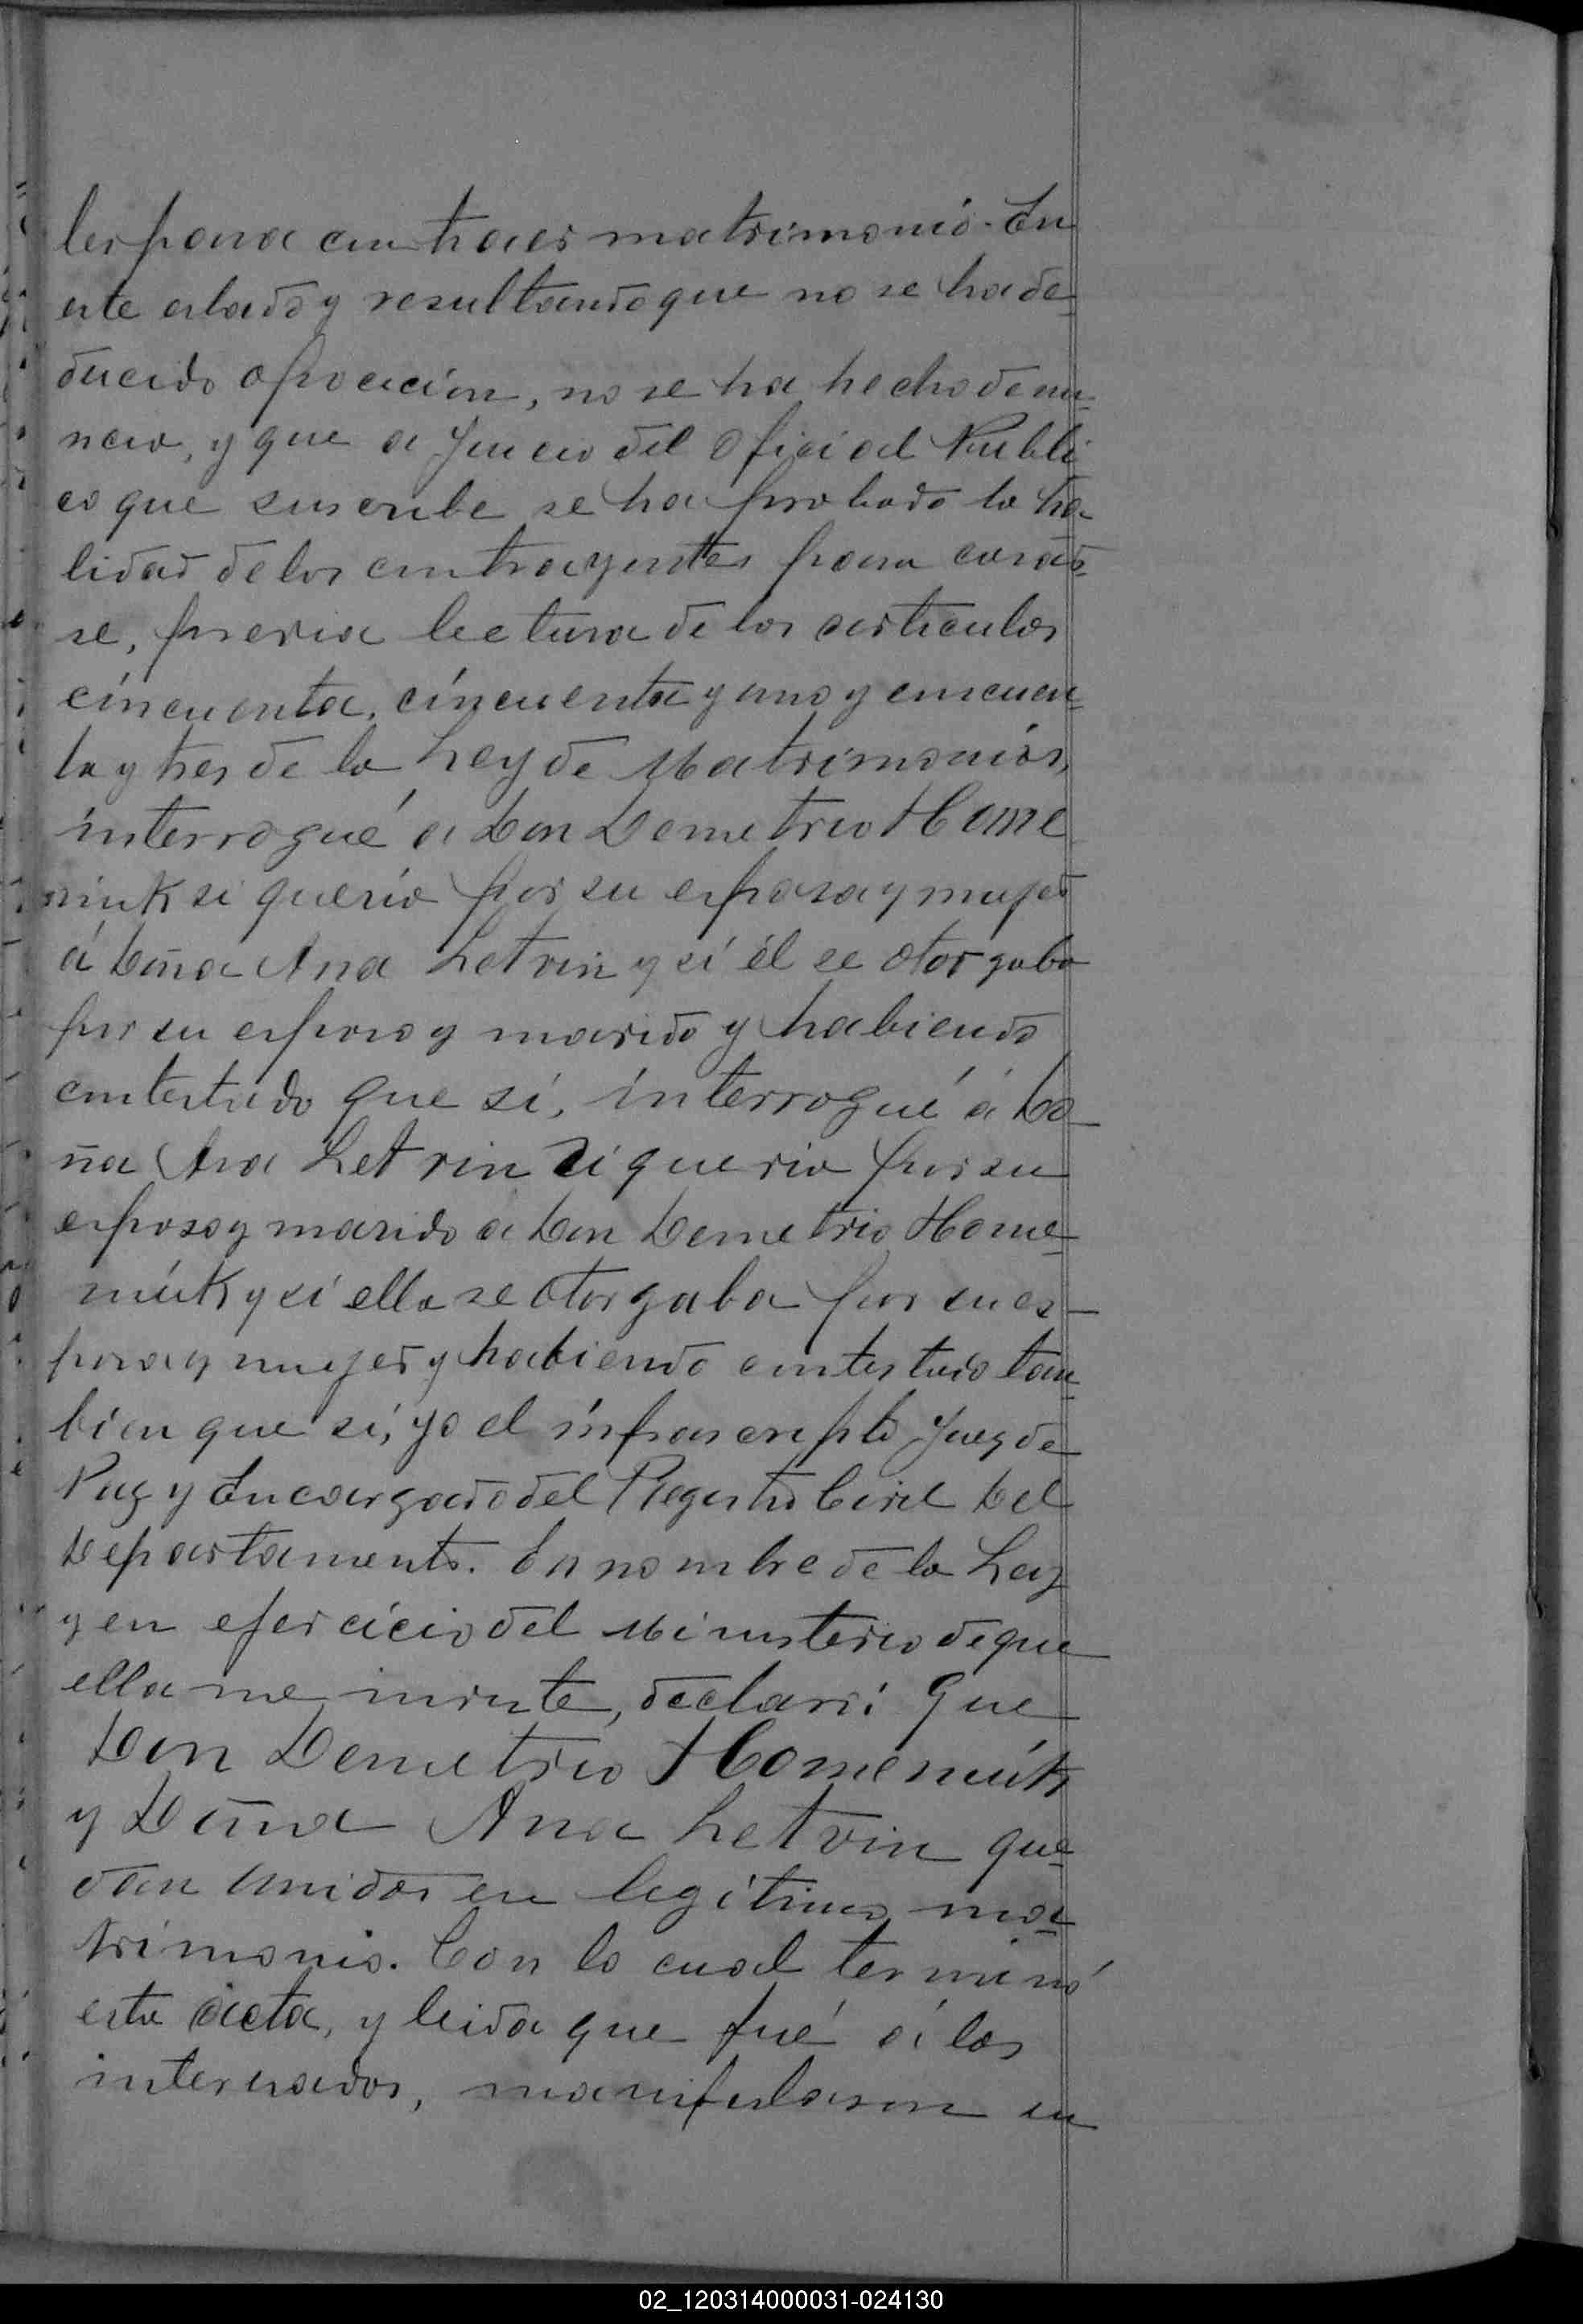 les para contraer matrimonio. En
este estado y resultando que no se ha de-
ducido oposicion, no se ha hecho denun-
ncia, y que a Juicio del Oficial Publi
co que suscribe se ha probado la ha-
lidad de los contrayentes para casar-
se, previa lectura de los articulos
cincuenta, cincuenta y uno y cincuen-
ta y tres de la Ley de Matrimonios,
interrogué a Don Demetrio Home
niuk si queria por su esposa y mujer
á Doña Ana Letvin y si él se otorgaba
por su esposo y marido y habiendo
contestado que si, interrogué á Do-
ña Ana Letvin si queria por su
esposo y marido a Don Demetrio Home-
niuk y si ella se otorgaba por su es-
posa y mujer y habiendo contestado tam-
bien que si, yo el infrascripto Juez de
Paz y Encargado del Registro Civil del
Departamento. En nombre de la Ley
y en ejercicio del Ministerio de que
ella me inviste, declaré: Que
Don Demetrio Homeniuk
y Doña Ana Letvin que-
dan unidos en legítimo ma-
trimonio. Con lo cual terminó
esta acta, y leida que fué á los
interesados, manifestaron su